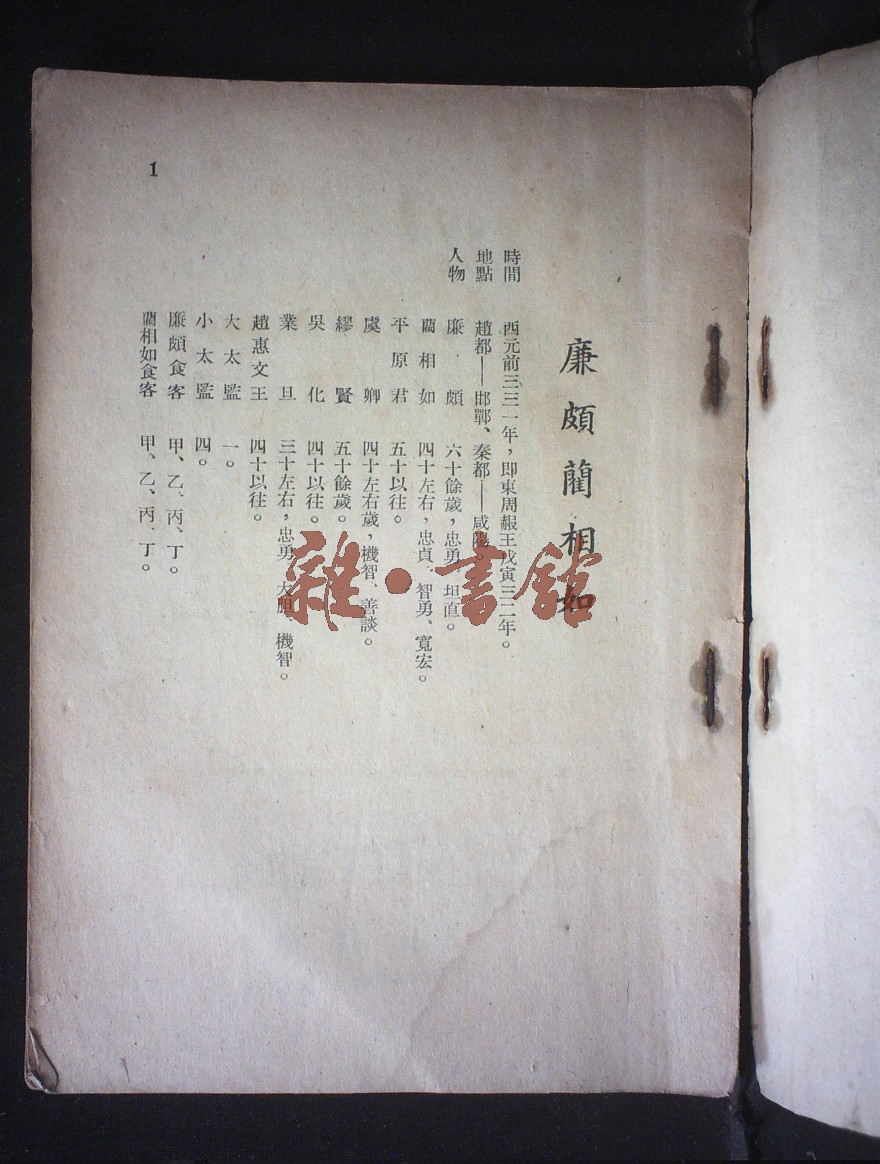 廉頗藺相如
時間　西元前三三一年，即東周赧王戊寅三二年。
地點　趙都——邯鄲、秦都——咸陽。
人物　廉頗　六十餘歲，忠勇、坦直。
藺相如　四十左右，忠貞、智勇、寬宏。
平原君　五十以往。
虞卿　四十左右歲，機智、善談。
繆賢　五十餘歲。
吳化　四十以往。
業旦　三十左右，忠勇、大胆、機智。
趙惠文王　四十以往。
大太監　一。
小太監　四。
廉頗食客　甲、乙、丙、丁。
藺相如食客　甲、乙、丙、丁。
1
雜·書館